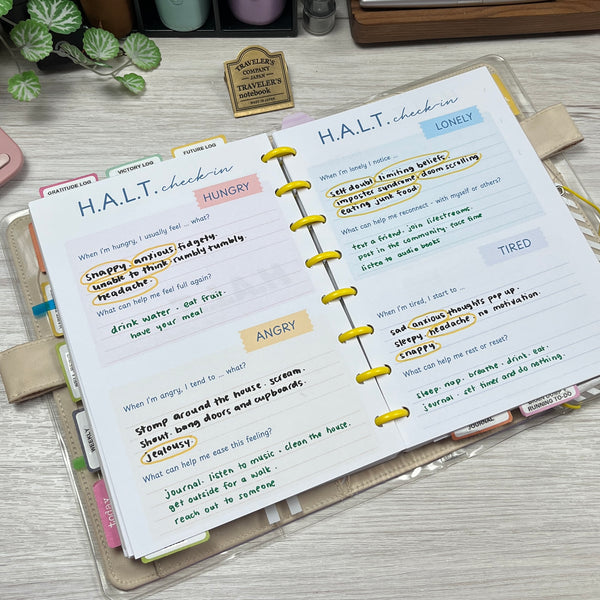 TRAVELER'S
COMPANY
JAPAN
TRAVELER'S
notebook
MADE IN JAPAN
GRATITUDE LOG
VICTORY LOG
FUTURE LOG
H.A.L.T. check-in
HUNGRY
When I'm hungry, I usually feel ... what?
snappy. anxious. fidgety.
unable to think. rumbly tumbly.
headache.
What can help me feel full again?
drink water. eat fruit.
have your meal
ANGRY
When I'm angry, I tend to ... what?
stomp around the house. scream.
shout. bang doors and cupboards.
jealousy.
What can help me ease this feeling?
journal. listen to music. clean the house.
get outside for a walk.
reach out to someone
H.A.L.T. check-in
LONELY
When I'm lonely I notice ...
self doubt. limiting beliefs.
imposter syndrome. doom scrolling
eating junk food
What can help me reconnect - with myself or others?
text a friend. join livestreams.
post in the community. face time
listen to audio books
TIRED
When I'm tired, I start to ...
sad. anxious thoughts pop up.
sleepy. headache. no motivation.
snappy
What can help me rest or reset?
sleep. nap. breathe. drink. eat.
journal. set timer and do nothing.
WEEKLY
JOURNAL
RUNNING TO-DO